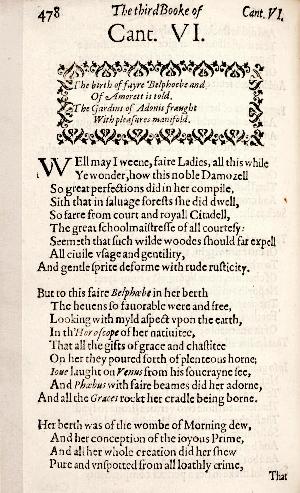 478 The third Booke of Cant. VI.
Cant. VI.
The birth of fayre Belphoebe and
Of Amorett is told,
The Gardins of Adonis fraught
With pleasures manifold.
WEll may I weene, faire Ladies, all this while
Ye wonder, how this noble Damozell
So great perfections did in her compile,
Sith that in saluage forests she did dwell,
So farre from court and royall Citadell,
The great schoolmaistresse of all courtesy:
Seemeth that such wilde woodes should far expell
All ciuile vsage and gentility,
And gentle sprite deforme with rude rusticity.
But to this faire Belphœbe in her berth
The heuens so fauorable were and free,
Looking with myld aspect vpon the earth,
In th'Horoscope of her natiuitee,
That all the gifts of grace and chastitee
On her they poured forth of plenteous horne;
Ioue laught on Venus from his souerayne see,
And Phœbus with faire beames did her adorne,
And all the Graces rockt her cradle being borne.
Her berth was of the wombe of Morning dew,
And her conception of the ioyous Prime,
And all her whole creation did her shew
Pure and vnspotted from all loathly crime,
That